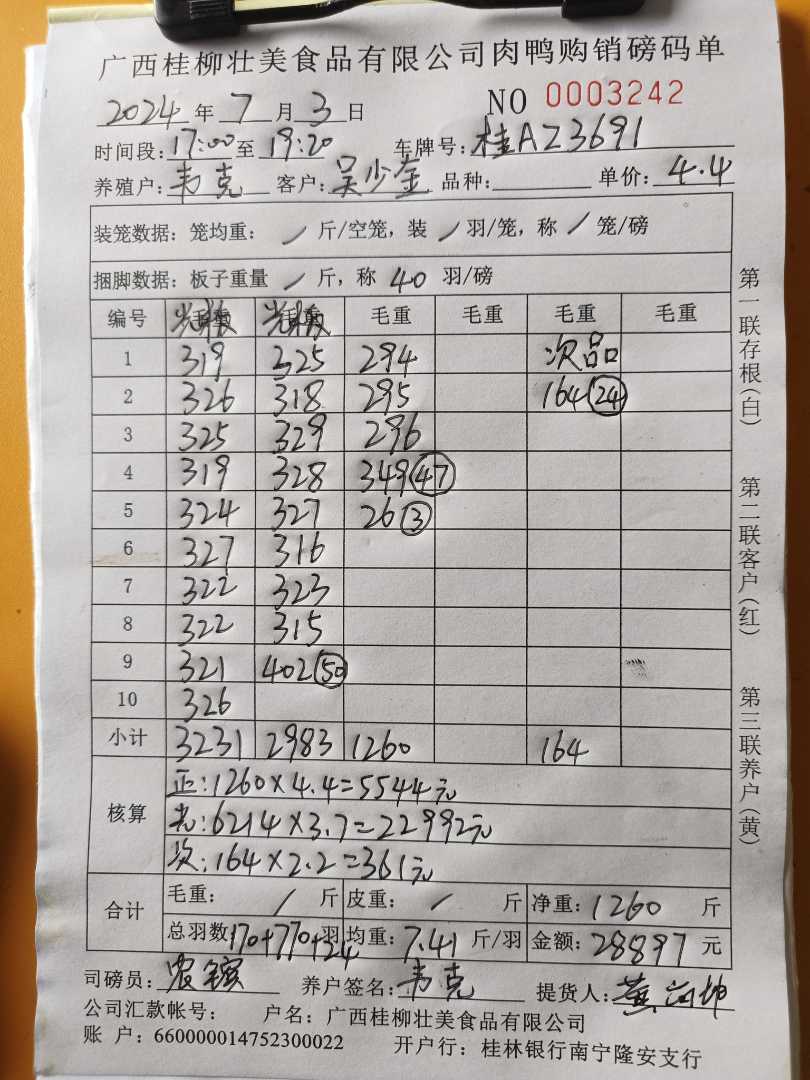 广西桂柳壮美食品有限公司肉鸭购销磅码单
2024 年 7 月 3 日 NO 0003242
时间段: 17:00 至 19:20 车牌号: 桂AZ3691
养殖户: 韦克 客户: 吴少奎 品种: 单价: 4.4
装笼数据: 笼均重: / 斤/空笼, 装 / 羽/笼, 称 / 笼/磅
捆脚数据: 板子重量 / 斤, 称 40 羽/磅
编号 毛重 毛重 毛重 毛重
1 319 325 294 次品
2 326 318 295 164 (24)
3 325 329 296
4 319 328 349 (47)
5 324 327 26 (3)
6 327 316
7 322 323
8 322 315
9 321 402 (50)
10 326
小计 3231 2983 1260 164
核算
正:1260×4.4=5544元
光:6214×3.7=22992元
次:164×2.2=361元
合计 毛重: / 斤 皮重: / 斤 净重: 1260 斤
总羽数 170+770+24 羽 均重: 7.41 斤/羽 金额: 28897 元
司磅员: 养户签名: 韦克 提货人:
公司汇款帐号: 户名: 广西桂柳壮美食品有限公司
账 户: 660000014752300022 开户行: 桂林银行南宁隆安支行
第一联存根(白) 第二联客户(红) 第三联养户(黄)